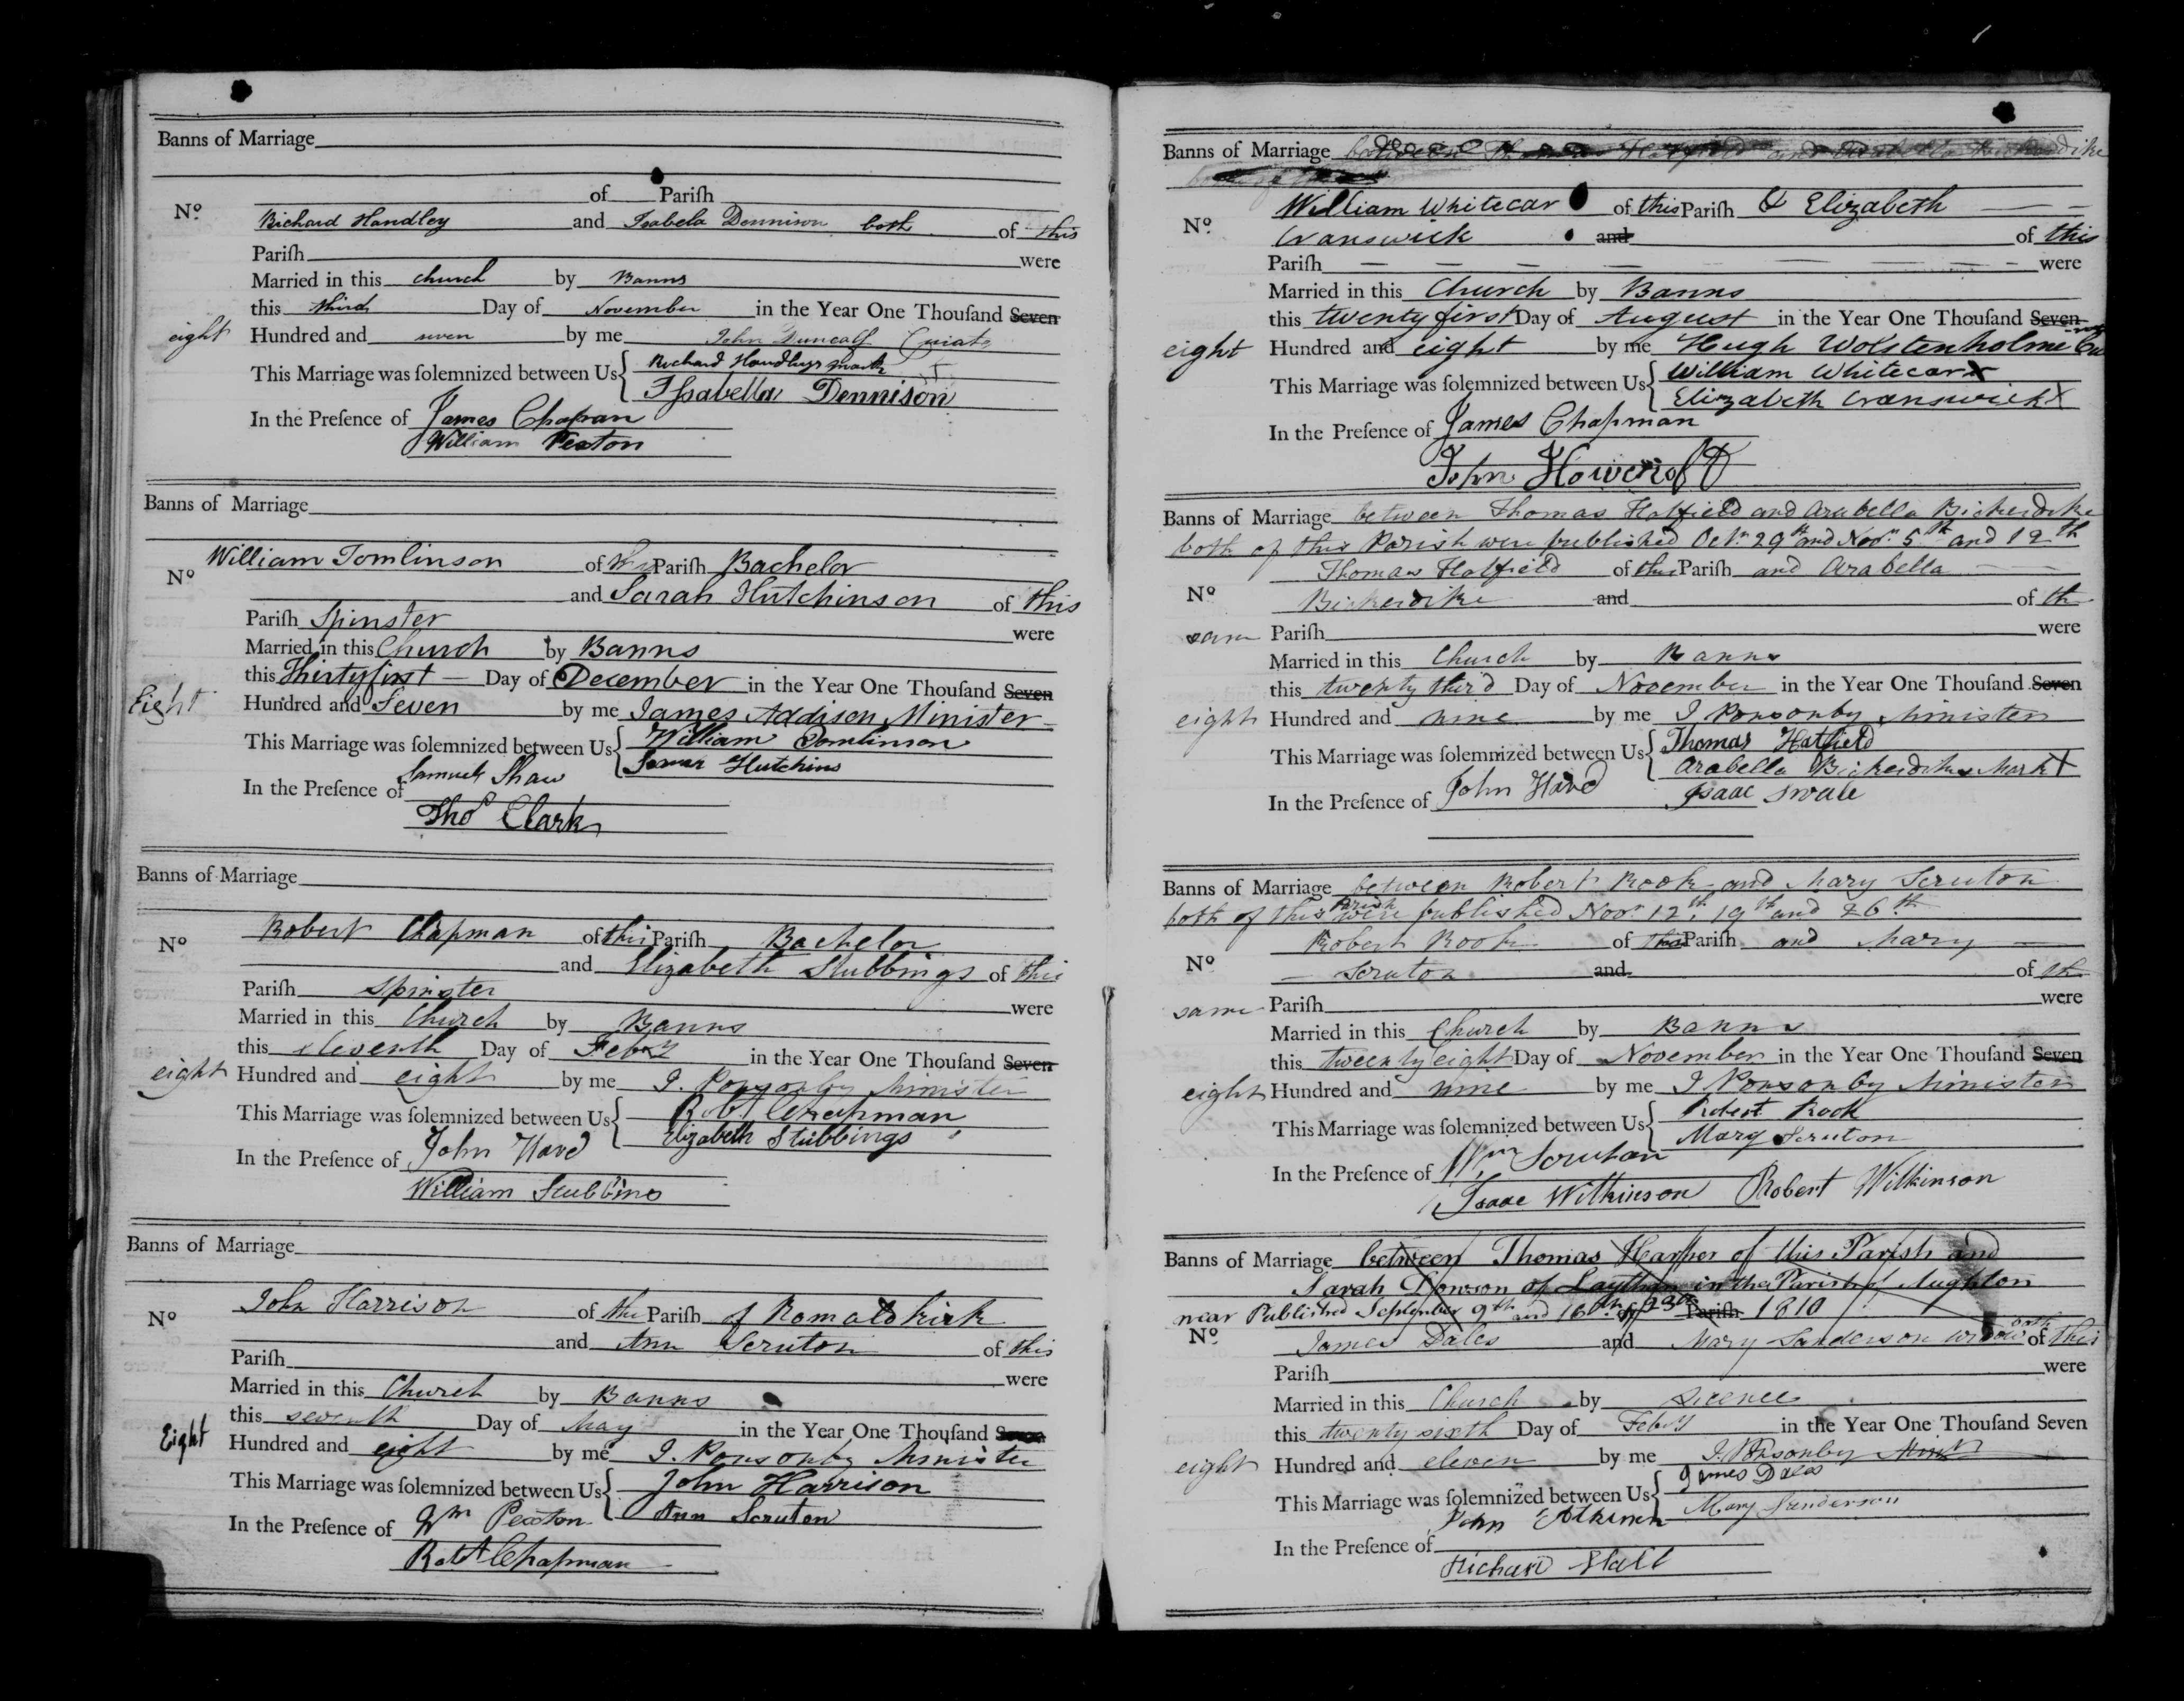 Banns of Marriage
of Parish
No.
Richard Handley and Isabela Dennison both of this
Parish were
Married in this church by Banns
this third Day of November in the Year One Thousand Seven
eight Hundred and seven by me John Duncalf Curiate
This Marriage was solemnized between Us Richard Handleys mark X
Isabella Dennison
In the Presence of James Chapman
William Pexton
Banns of Marriage
William Tomlinson of this Parish Bachelor
No
and Sarah Hutchinson of this
Parish Spinster were
Married in this Church by Banns
this Thirtyfirst Day of December in the Year One Thousand Seven
Eight Hundred and Seven by me James Addison Minister
This Marriage was solemnized between Us William Tomlinson
Hutchins
In the Presence of Samuel Shaw
Thos Clark
Banns of Marriage
Robert Chapman of this Parish Bachelor
No
and Elizabeth Stubbings of this
Parish Spinster were
Married in this Church by Banns
this eleventh Day of Feby in the Year One Thousand Seven
eight Hundred and eight by me I. Ponsonby Minister
This Marriage was solemnized between Us Robt Chapman
Elizabeth Stubbings
In the Presence of John Hard
William Stubbins
Banns of Marriage
John Harrison of the Parish of Romaldkirk
No
and Ann Scruton of this
Parish were
Married in this Church by Banns
this seventh Day of May in the Year One Thousand Seven
Eight Hundred and eight by me I. Ponsonby Minister
This Marriage was solemnized between Us John Harrison
Ann Scruton
In the Presence of Wm Pexton
Robt Chapman
Banns of Marriage between Thomas Hatfield and Arabella Bickerdike
both of this
William Whitecar of this Parish & Elizabeth
No.
Cranswick and of this
Parish were
Married in this Church by Banns
this twenty first Day of August in the Year One Thousand Seven
eight Hundred and eight by me Hugh Wolstenholme
This Marriage was solemnized between Us William Whitecar X
Elizabeth Cranswick X
In the Presence of James Chapman
John Howcroft
Banns of Marriage between Thomas Hatfield and Arabella Bickerdike
both of this Parish were published Octr 29th and Novr 5th and 12th
Thomas Hatfield of this Parish and Arabella
No
Bickerdike and of th
same Parish were
Married in this Church by Banns
this twenty third Day of November in the Year One Thousand Seven
eight Hundred and nine by me I Ponsonby Minister
This Marriage was solemnized between Us Thomas Hatfield
Arabella Bickerdikes Mark X
In the Presence of John Hard Isaac Swale
Banns of Marriage between Robert Rook and Mary Scruton
both of this Parish were published Novr 12th, 19th and 26th
Robert Rook of this Parish and Mary
No
Scruton and of th
same Parish were
Married in this Church by Banns
this twenty eight Day of November in the Year One Thousand Seven
eight Hundred and nine by me I Ponsonby Minister
This Marriage was solemnized between Us Robert Rook
Mary Scruton
In the Presence of Wm Scruton
Isaac Wilkinson Robert Wilkinson
Banns of Marriage between Thomas Harper of this Parish and
Sarah Dowson of Laytham in the Parish of Aughton
near Published September 9th and 16th & 23rd Parish 1810
No.
James Dales and Mary Sanderson widow both of this
Parish were
Married in this Church by Licence
this twenty sixth Day of Feby in the Year One Thousand Seven
eight Hundred and eleven by me I. Ponsonby Minr
This Marriage was solemnized between Us James Dales
Mary Sanderson
John Atkinson
In the Presence of
Richard Hall